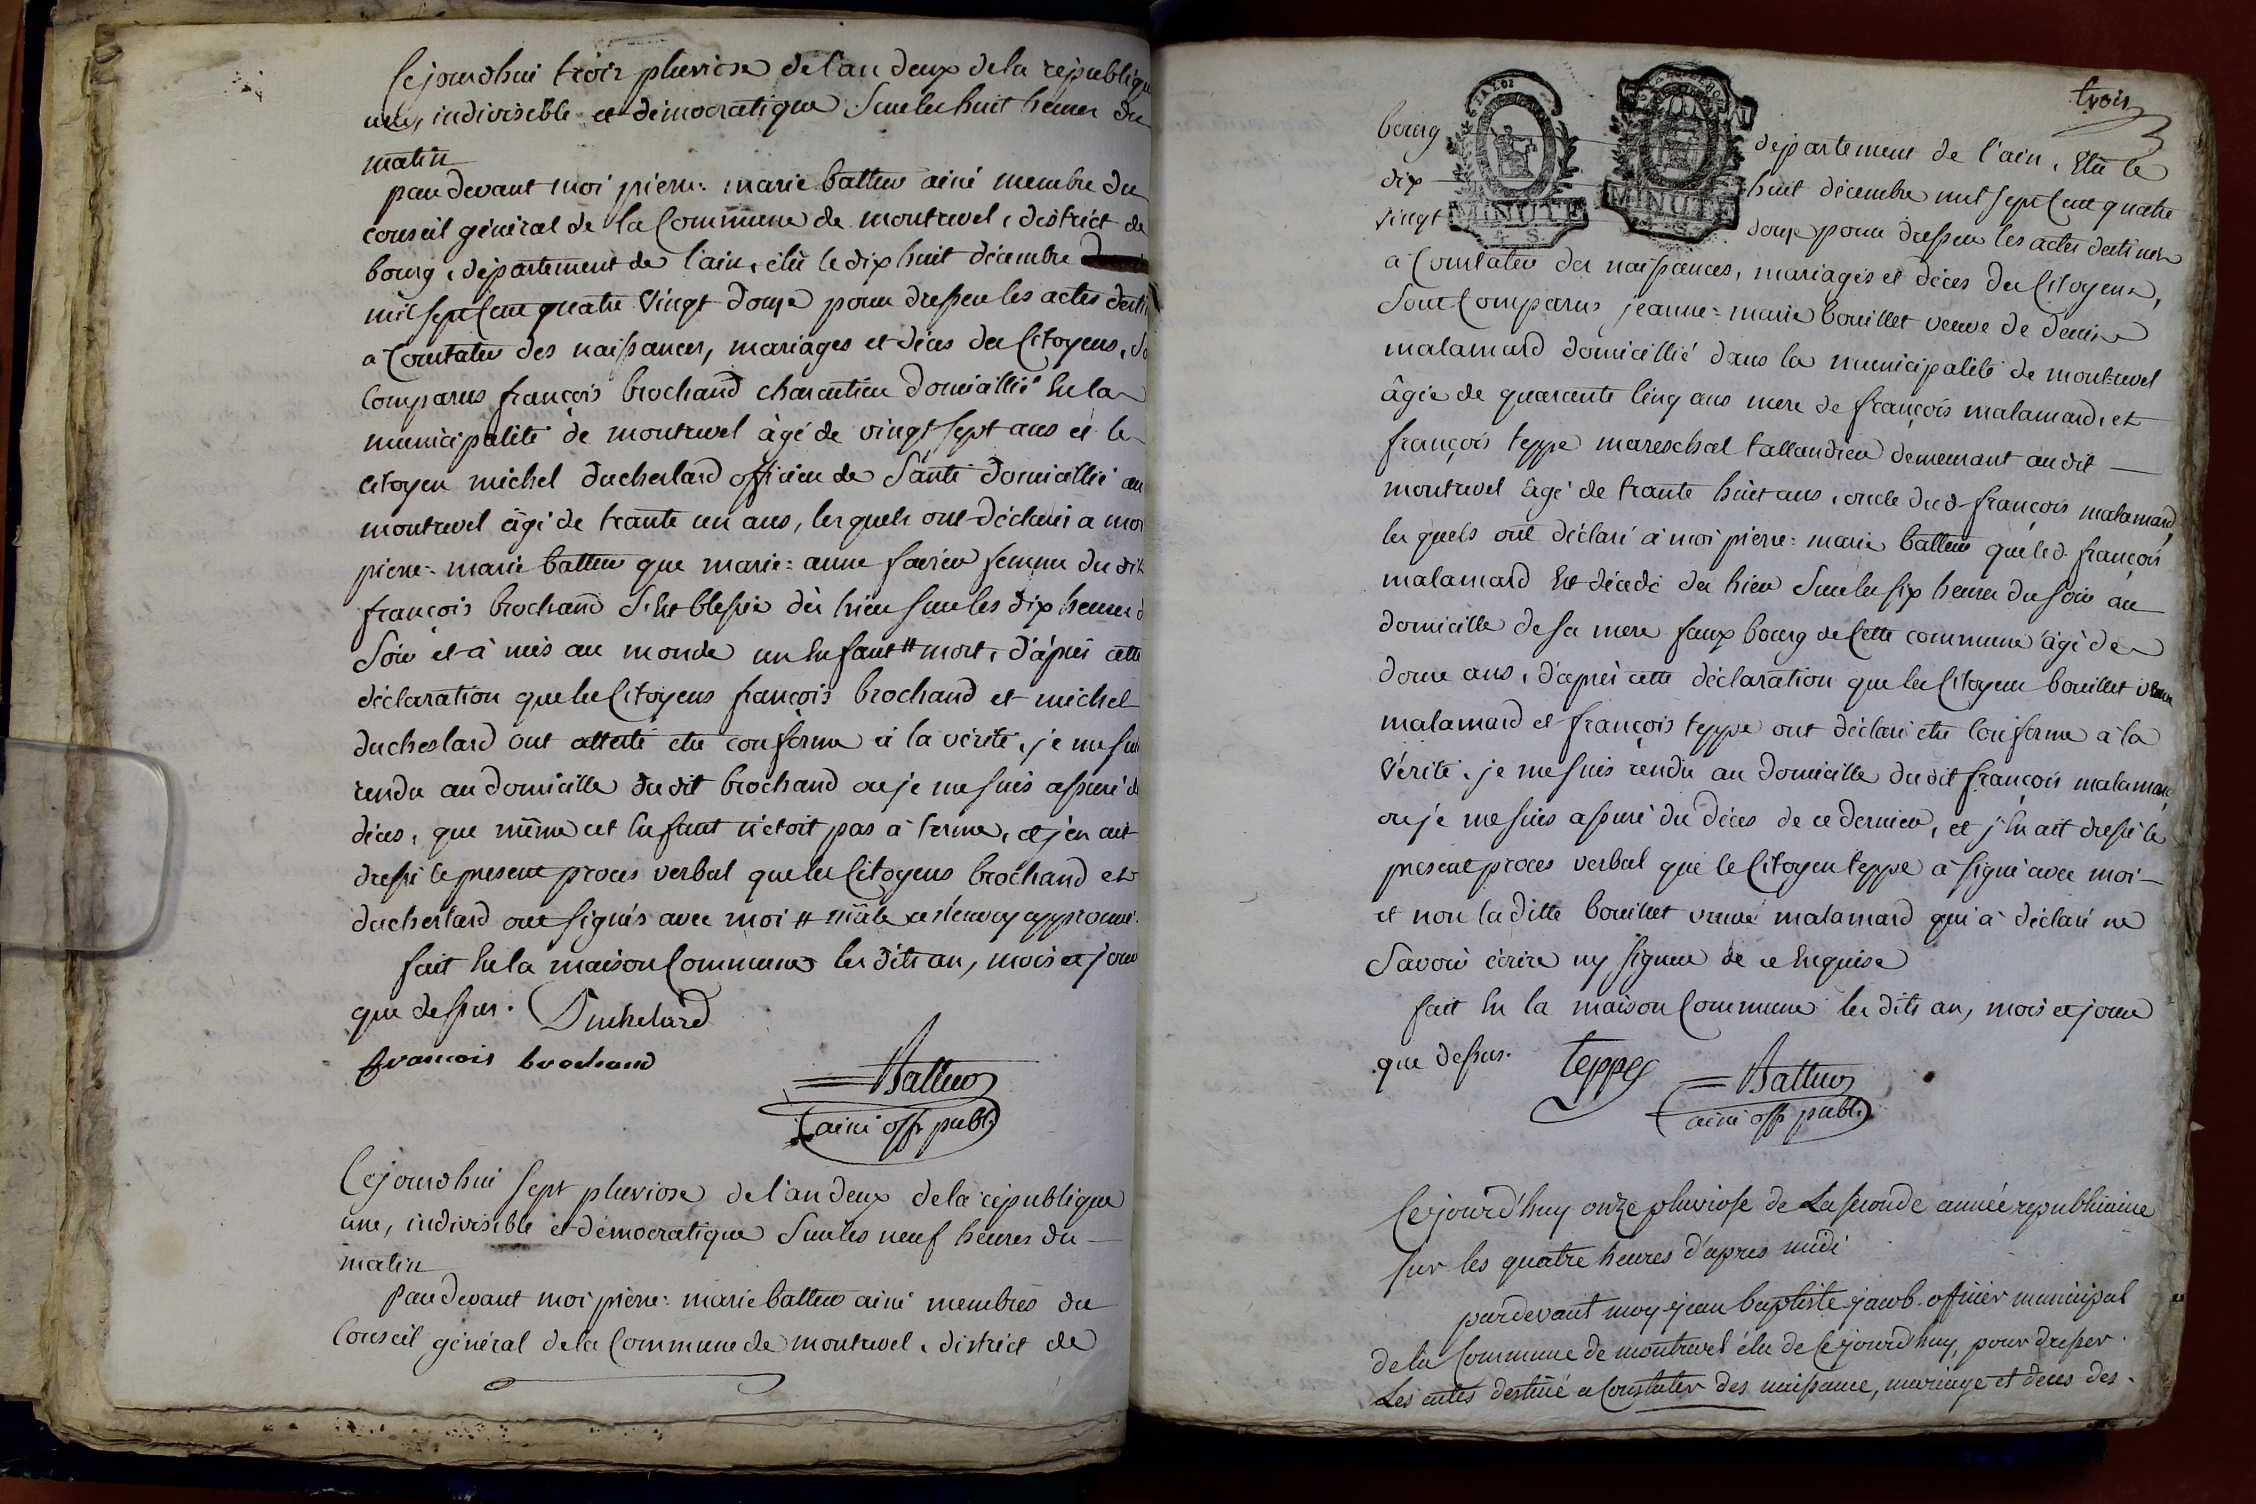 Cejourdhui trois pluviose de l'an deux de la republique
une, indivisible et démocratique Sur les huit heures du
matin
par devant moi pierre=marie batteur ainé membre du
conseil général de la Commune de montrevel, district de
bourg, département de l'ain, élu le dix huit décembre
mil sept Cent quatre Vingt douze pour dresser les actes destin
a Constater des naissances, mariages et décès des Citoyens, So
Comparus françois brochand charcutier domicillié En la
municipalité de montrevel âgé de vingt sept ans et le
citoyen michel duchestard officier de Santé domicillié au
montrevel âgé de trante un ans, lesquels ont déclaré a moi
pierre=marie batteur que marie=anne favier femme du dit
françois brochand S'Est blessée dès hier sur les dix heures d
Soir et à mis au monde un Enfant # mort, d'après cette
déclaration que les Citoyens françois brochand et michel
duchestard ont attesté etre conforme à la vérité, je me suis
rendu au domicille du dit brochand ou je me suis assuré du
décès, que même cet Enfant n'étoit pas à terme, et j'en ait
dressé le present proces verbal que les Citoyens brochand et
duchestard ont signés avec moi # mâle ce renvoy approuvé.
fait En la maison Commune les dits an, mois et jour
que dessus. Duchelard
francois brochand
Batteur
ainé off publ.
Cejourdhui sept pluviose de l'an deux de la république
une, indivisible et démocratique Sur les neuf heures du
matin
Par devant moi pierre=marie batteur ainé membres du
Conseil général de la Commune de montrevel, district de
trois
LA LOI
MINUTE
4 S.
MINUTE
bourg département de l'ain, Elu le
dix huit décembre mil sept Cent quatre
vingt douze pour dresser les actes destinés
a Constater des naissances, mariages et décès des Citoyens,
Sont Comparus jeanne=marie bouillet veuve de denis
malamard domicillié dans la municipalité de montrevel
âgée de quarante Cinq ans mere de françois malamard, et
françois teppe mareschal tallandier demeurant au dit
montrevel âgé de trante huit ans, oncle dud françois malamard,
les quels ont déclaré à moi pierre=marie batteur que led. françois
malamard Est décédé des hier Sur les six heures du soir au
domicille de sa mere faux bourg de Cette commune âgé de
douze ans, d'après cette déclaration que les Citoyens bouillet veuve
malamard et françois teppe ont déclaré etre Conforme à la
Vérité, je me suis rendu au domicille du dit françois malamard
ou je me suis assuré du décès de ce dernier, et j'En ait dressé le
present proces verbal que le Citoyen teppe à signé avec moi
et non la ditte bouillet veuve malamard qui à déclaré ne
Savoir écrire ny signer de ce Enquise
fait En la maison Commune les dits an, mois et jour
que dessus. teppe
Batteur
ainé off publ.
Cejourd'huy onze pluviose de La seconde année republicaine
sur les quatre heures d'apres midi
pardevant moy jean baptiste jacob officier municipal
de la Commune de montrevel élu de Cejourd'huy, pour dresser
Les actes destiné a Constater des naissance, mariage et deces des